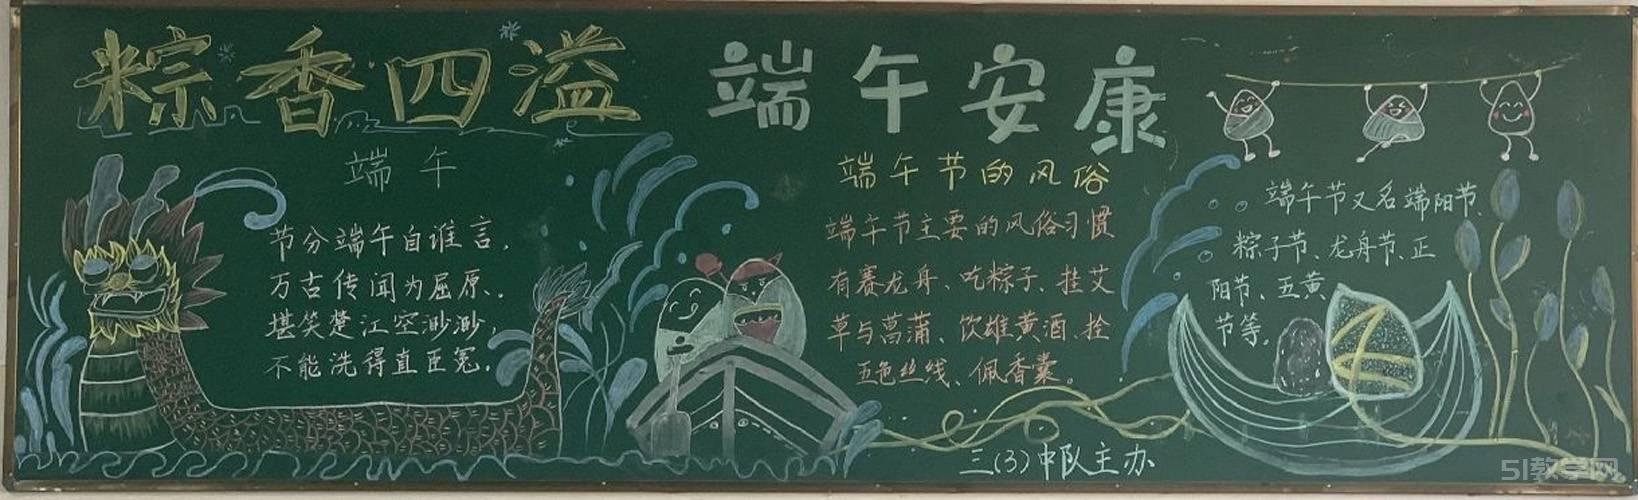 粽香四溢 端午安康
端午
节分端午自谁言，
万古传闻为屈原。
堪笑楚江空渺渺，
不能洗得直臣冤。
端午节的风俗
端午节主要的风俗习惯
有赛龙舟、吃粽子、挂艾
草与菖蒲、饮雄黄酒、拴
五色丝线、佩香囊。
端午节又名端阳节、
粽子节、龙舟节、正
阳节、五黄
节等。
三(3)中队主办
51教学网